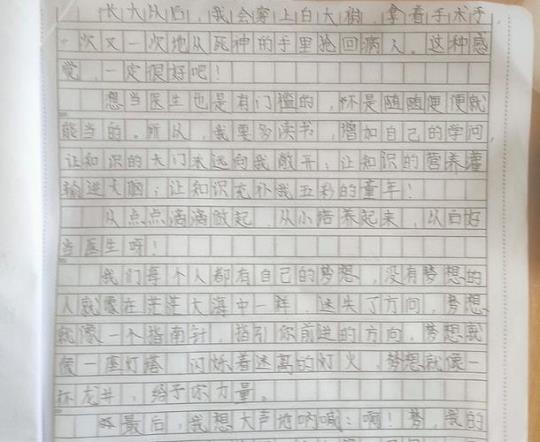 长大以后，我会穿上白大褂，拿着手术刀，
一次又一次地从死神的手里抢回病人。这种感
觉，一定很好吧！
想当医生也是有门槛的，不是随随便便就
能当的。所以，我要多读书，增加自己的学问，
让知识的大门永远向我敞开；让知识的营养灌
输进大脑；让知识充补我五彩的童年！
从点点滴滴做起，从小培养起来，以后好
当医生呀！
我们每个人都有自己的梦想，没有梦想的
人就像在茫茫大海中一样，迷失了方向，梦想
就像一个指南针，指引你前进的方向，梦想就
像一座灯塔，闪烁着遥高的灯火，梦想就像一
杯龙井，给予你力量。
最后，我想大声地呐喊：啊！梦，我的